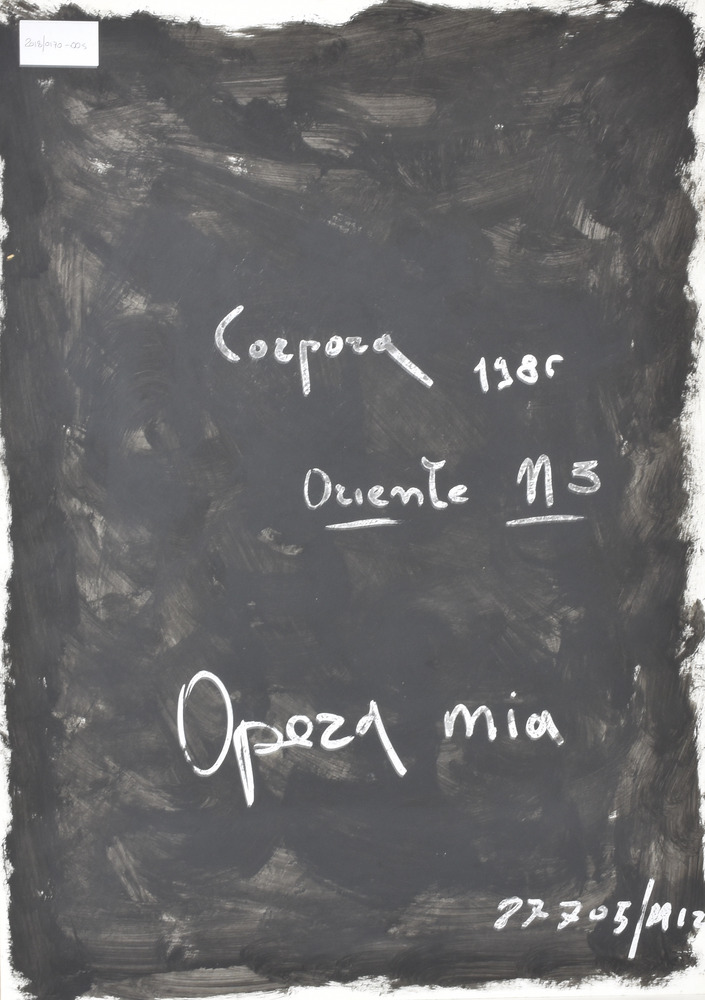 2018/0170-004
Corpora 1985
Oriente N 3
Opera mia
27705/M12